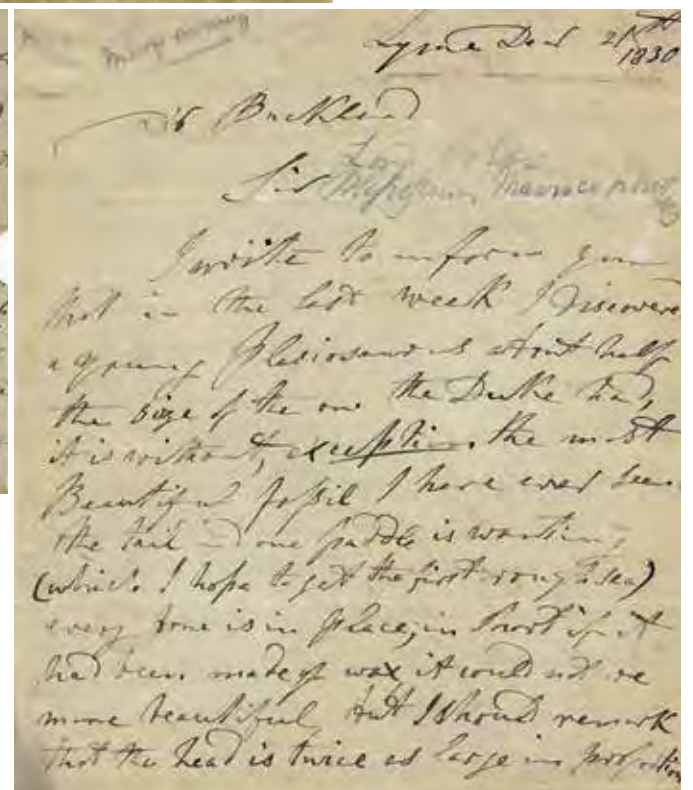 Mary Anning
Lyme Decr 21st
1830
Dr Buckland
Sir
I write to inform you
that in the last week I discovered
a young Plesiosaurus about half
the size of the one the Duke had,
it is without exception the most
Beautiful fossil I have ever seen
the tail and one paddle is wanting
(which I hope to get the first rough sea)
every bone is in place, in short if it
had been made of wax it could not be
more beautiful, but I should remark
that the head is twice as large in proportion